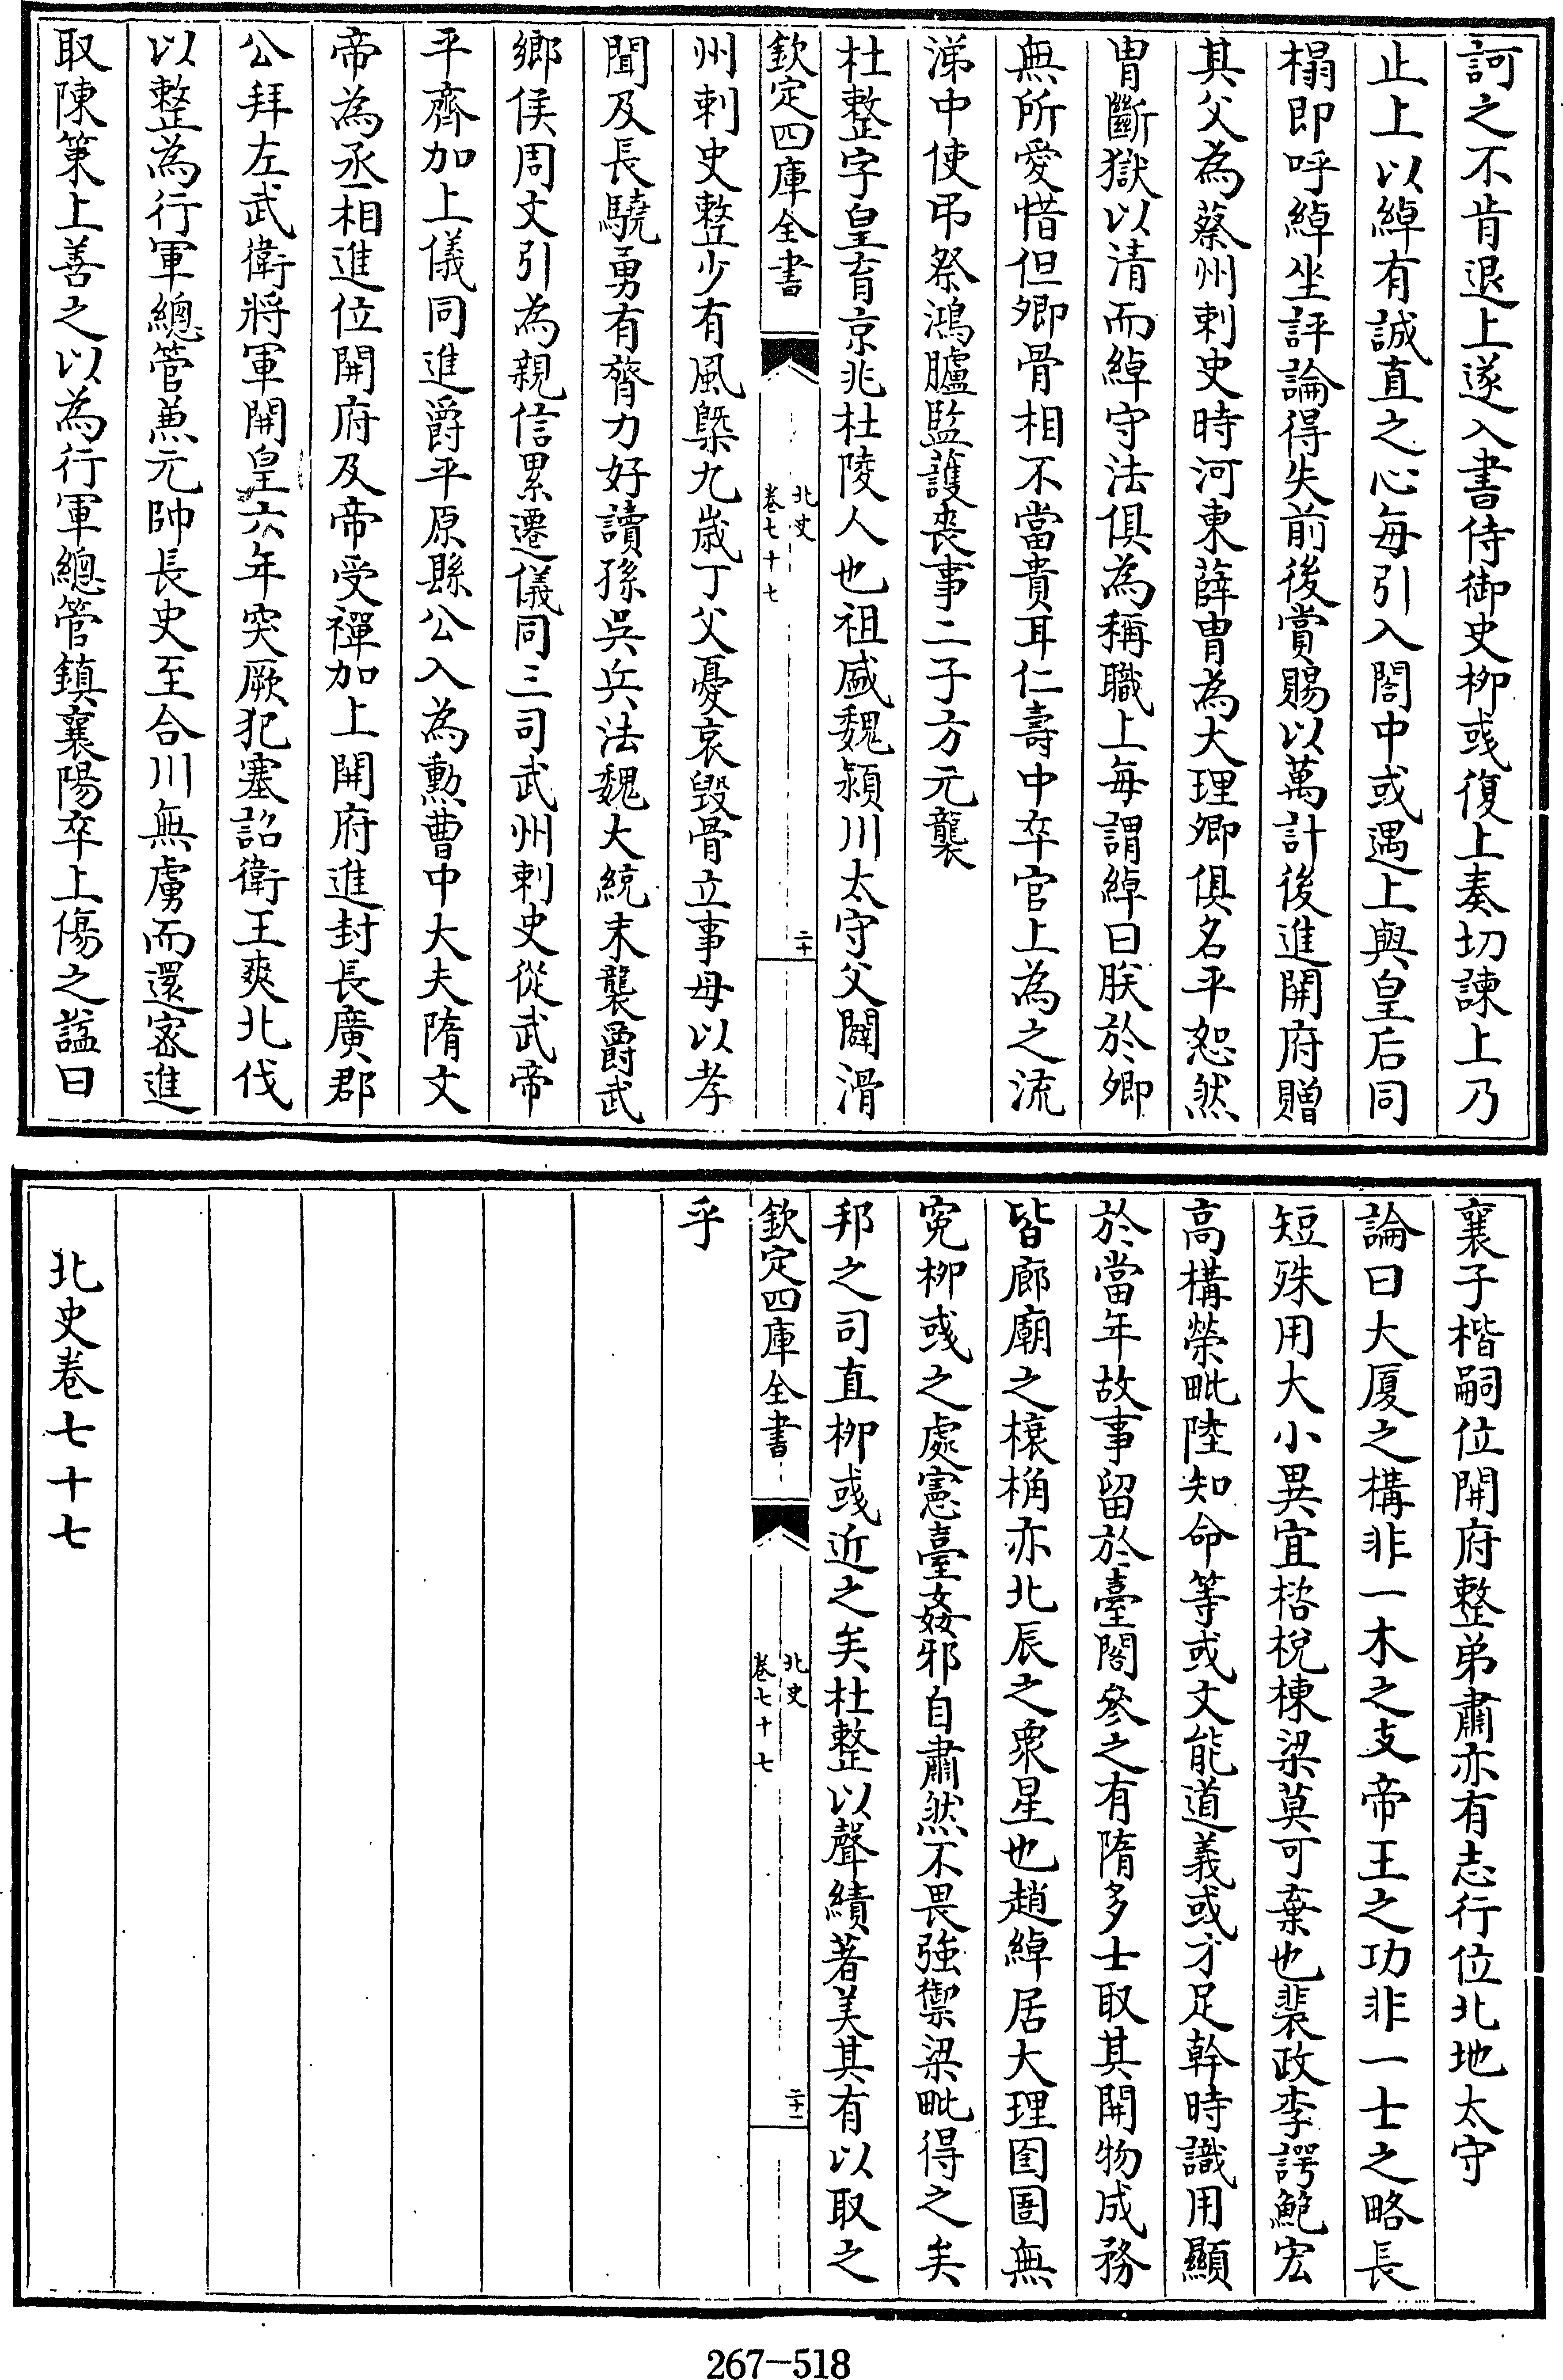 訶之不肯退上遂入書侍御史柳彧復上奏切諫上乃
止上以綽有誠直之心每引入閤中或遇上與皇后同
榻即呼綽坐評論得失前後賞賜以萬計後進開府贈
其父為蔡州刺史時河東薛胄為大理卿俱名平恕然
胄斷獄以清而綽守法俱為稱職上每謂綽曰朕於卿
無所愛惜但卿骨相不當貴耳仁壽中卒官上為之流
涕中使弔祭鴻臚監護喪事二子方元襲
杜整字皇育京兆杜陵人也祖盛魏潁川太守父闢滑
欽定四庫全書
北史
卷七十七
二十
州刺史整少有風槩九歲丁父憂哀毀骨立事母以孝
聞及長驍勇有膂力好讀孫吳兵法魏大統末襲爵武
鄉侯周文引為親信累遷儀同三司武州刺史從武帝
平齊加上儀同進爵平原縣公入為勲曹中大夫隋文
帝為丞相進位開府及帝受禪加上開府進封長廣郡
公拜左武衛將軍開皇六年突厥犯塞詔衛王爽北伐
以整為行軍總管兼元帥長史至合川無虜而還密進
取陳策上善之以為行軍總管鎮襄陽卒上傷之諡曰
襄子楷嗣位開府整弟肅亦有志行位北地太守
論曰大厦之構非一木之支帝王之功非一士之略長
短殊用大小異宜楶梲棟梁莫可棄也裴政李諤鮑宏
高構榮毗陸知命等或文能道義或才足幹時識用顯
於當年故事留於臺閣參之有隋多士取其開物成務
皆廊廟之榱桷亦北辰之衆星也趙綽居大理囹圄無
寃柳彧之處憲臺姦邪自肅然不畏強禦梁毗得之矣
邦之司直柳彧近之矣杜整以聲績著美其有以取之
欽定四庫全書
北史
卷七十七
二十一
乎
北史卷七十七
267-518